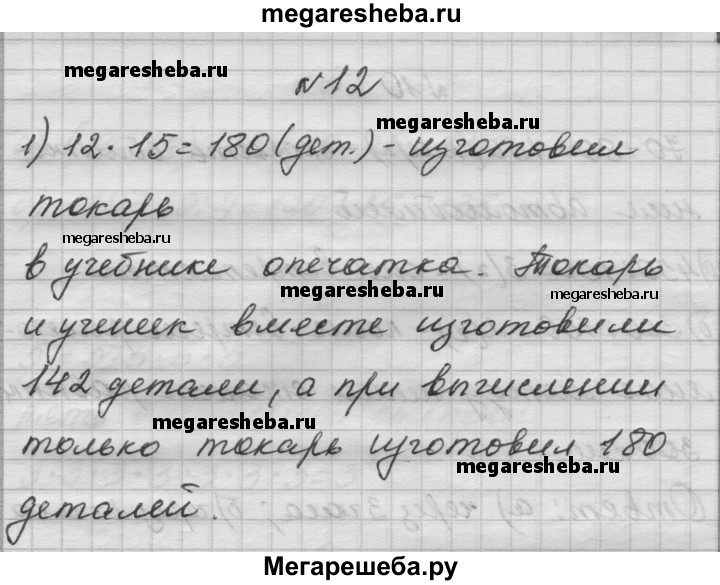 megaresheba.ru
megaresheba.ru
№12
megaresheba.ru
1) 12 · 15 = 180 (дет.) - изготовил
токарь
megaresheba.ru
в учебнике опечатка. Токарь
megaresheba.ru
megaresheba.ru
и ученик вместе изготовили
142 детали, а при вычислении
megaresheba.ru
только токарь изготовил 180
megaresheba.ru
деталей.
Мегарешеба.ру